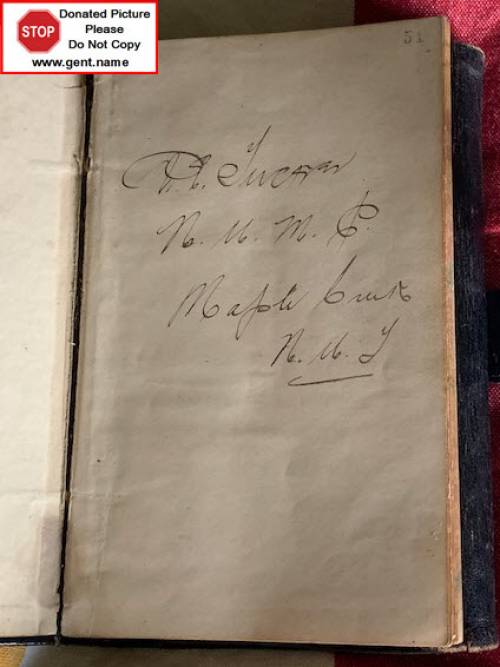 STOP
Donated Picture
Please
Do Not Copy
www.gent.name
51
N. W. M. P.
Maple Creek
N. W. T